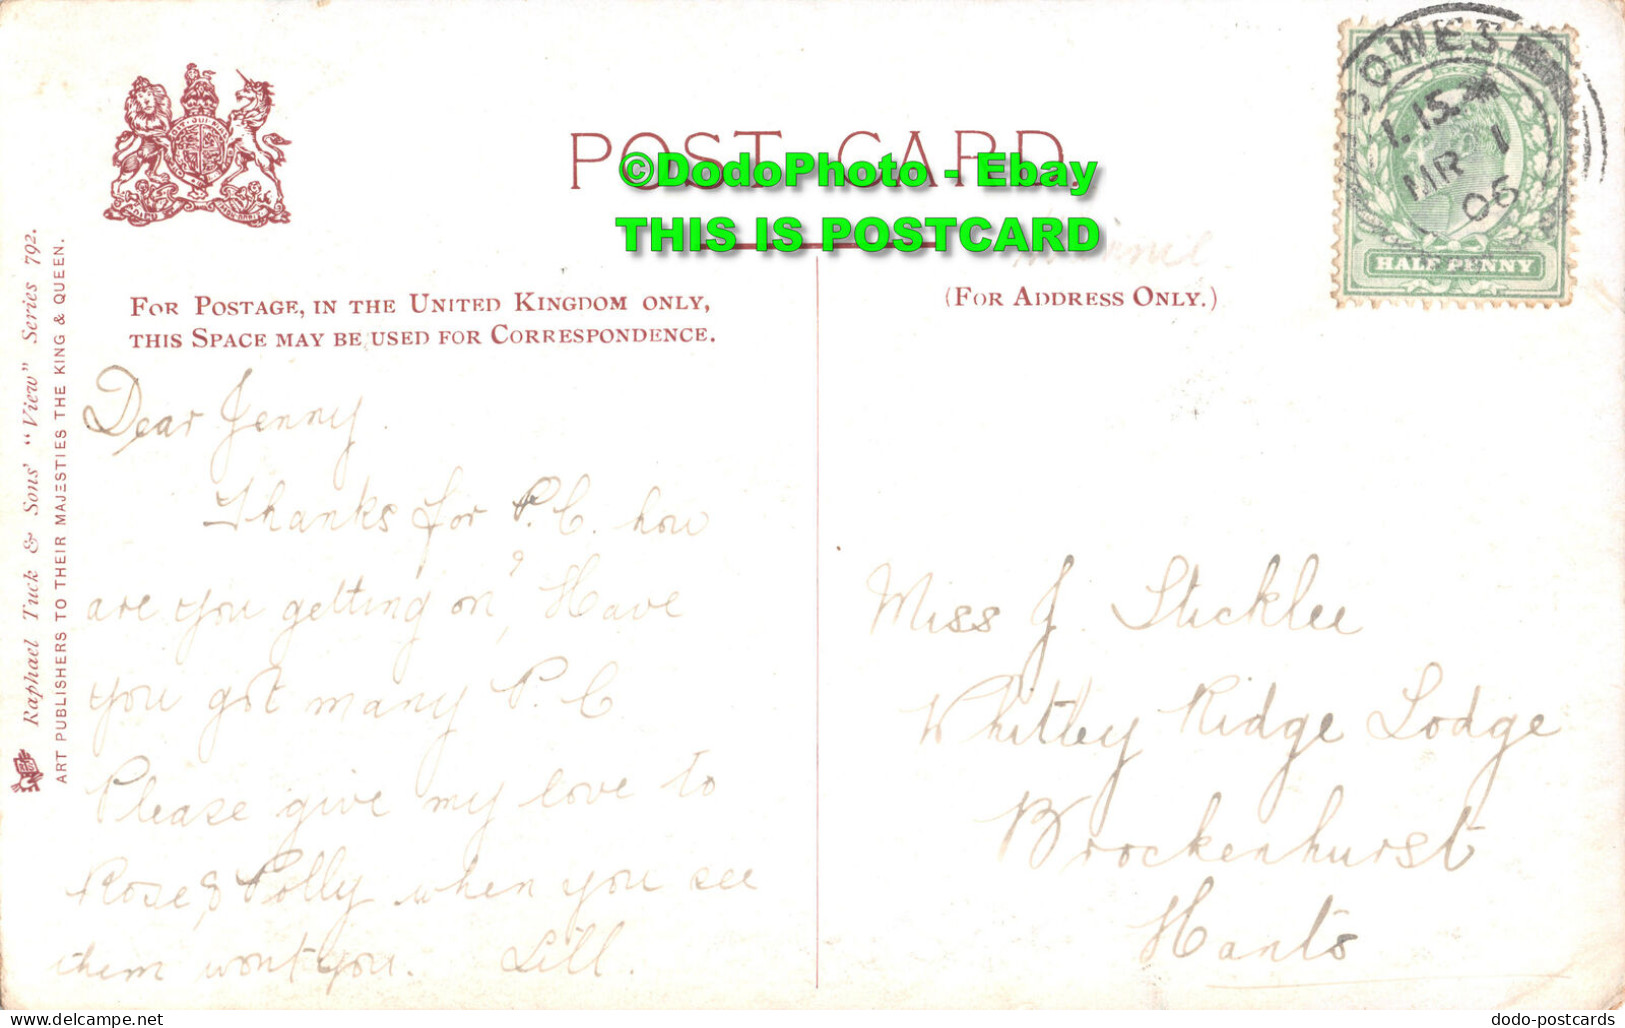 POST CARD
©DodoPhoto - Ebay
THIS IS POSTCARD
FOR POSTAGE, IN THE UNITED KINGDOM ONLY,
THIS SPACE MAY BE USED FOR CORRESPONDENCE.
(FOR ADDRESS ONLY.)
COWES
1.15
MR 1
06
HALF PENNY
Raphael Tuck & Sons' "View" Series 792.
ART PUBLISHERS TO THEIR MAJESTIES THE KING & QUEEN.
Dear Jenny.
Thanks for P.C. how
are you getting on? Have
you got many P.C
Please give my love to
Rose & Polly when you see
them wont you. Lill.
Miss J. Sticklee
Whitley Ridge Lodge
Brockenhurst
Hants
dodo-postcards
www.delcampe.net